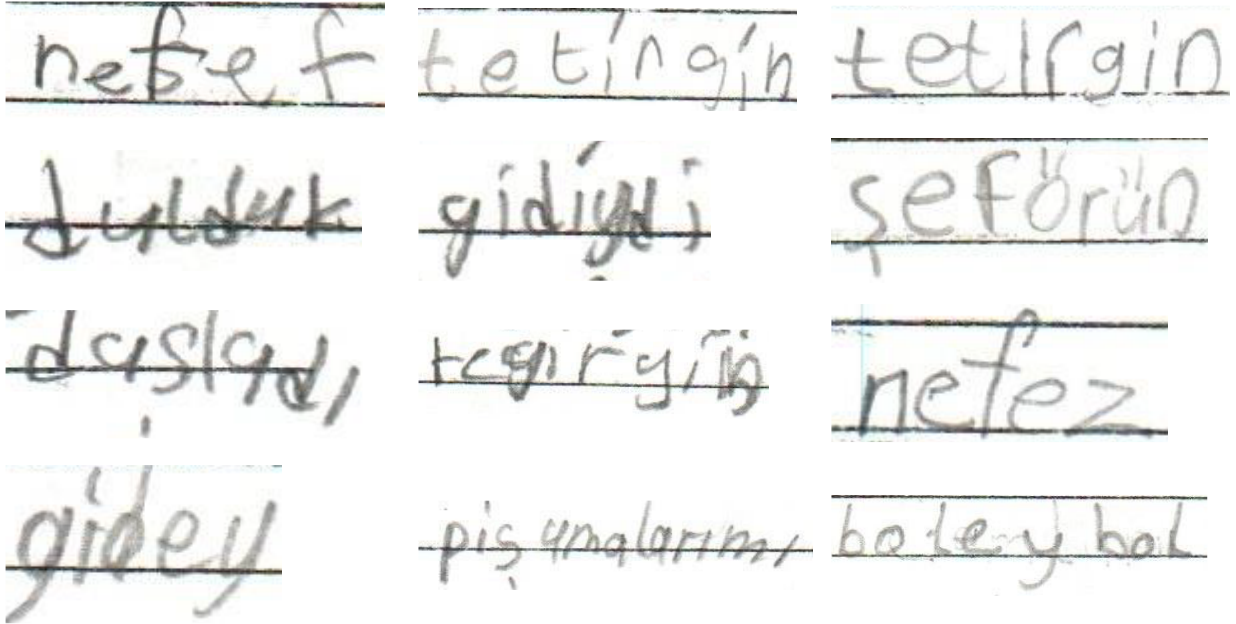 nefes tetirgin tetirgin
dulduk gidiydi şeförün
daşladı tegirgin nefez
gidey pişamalarımı boleybol